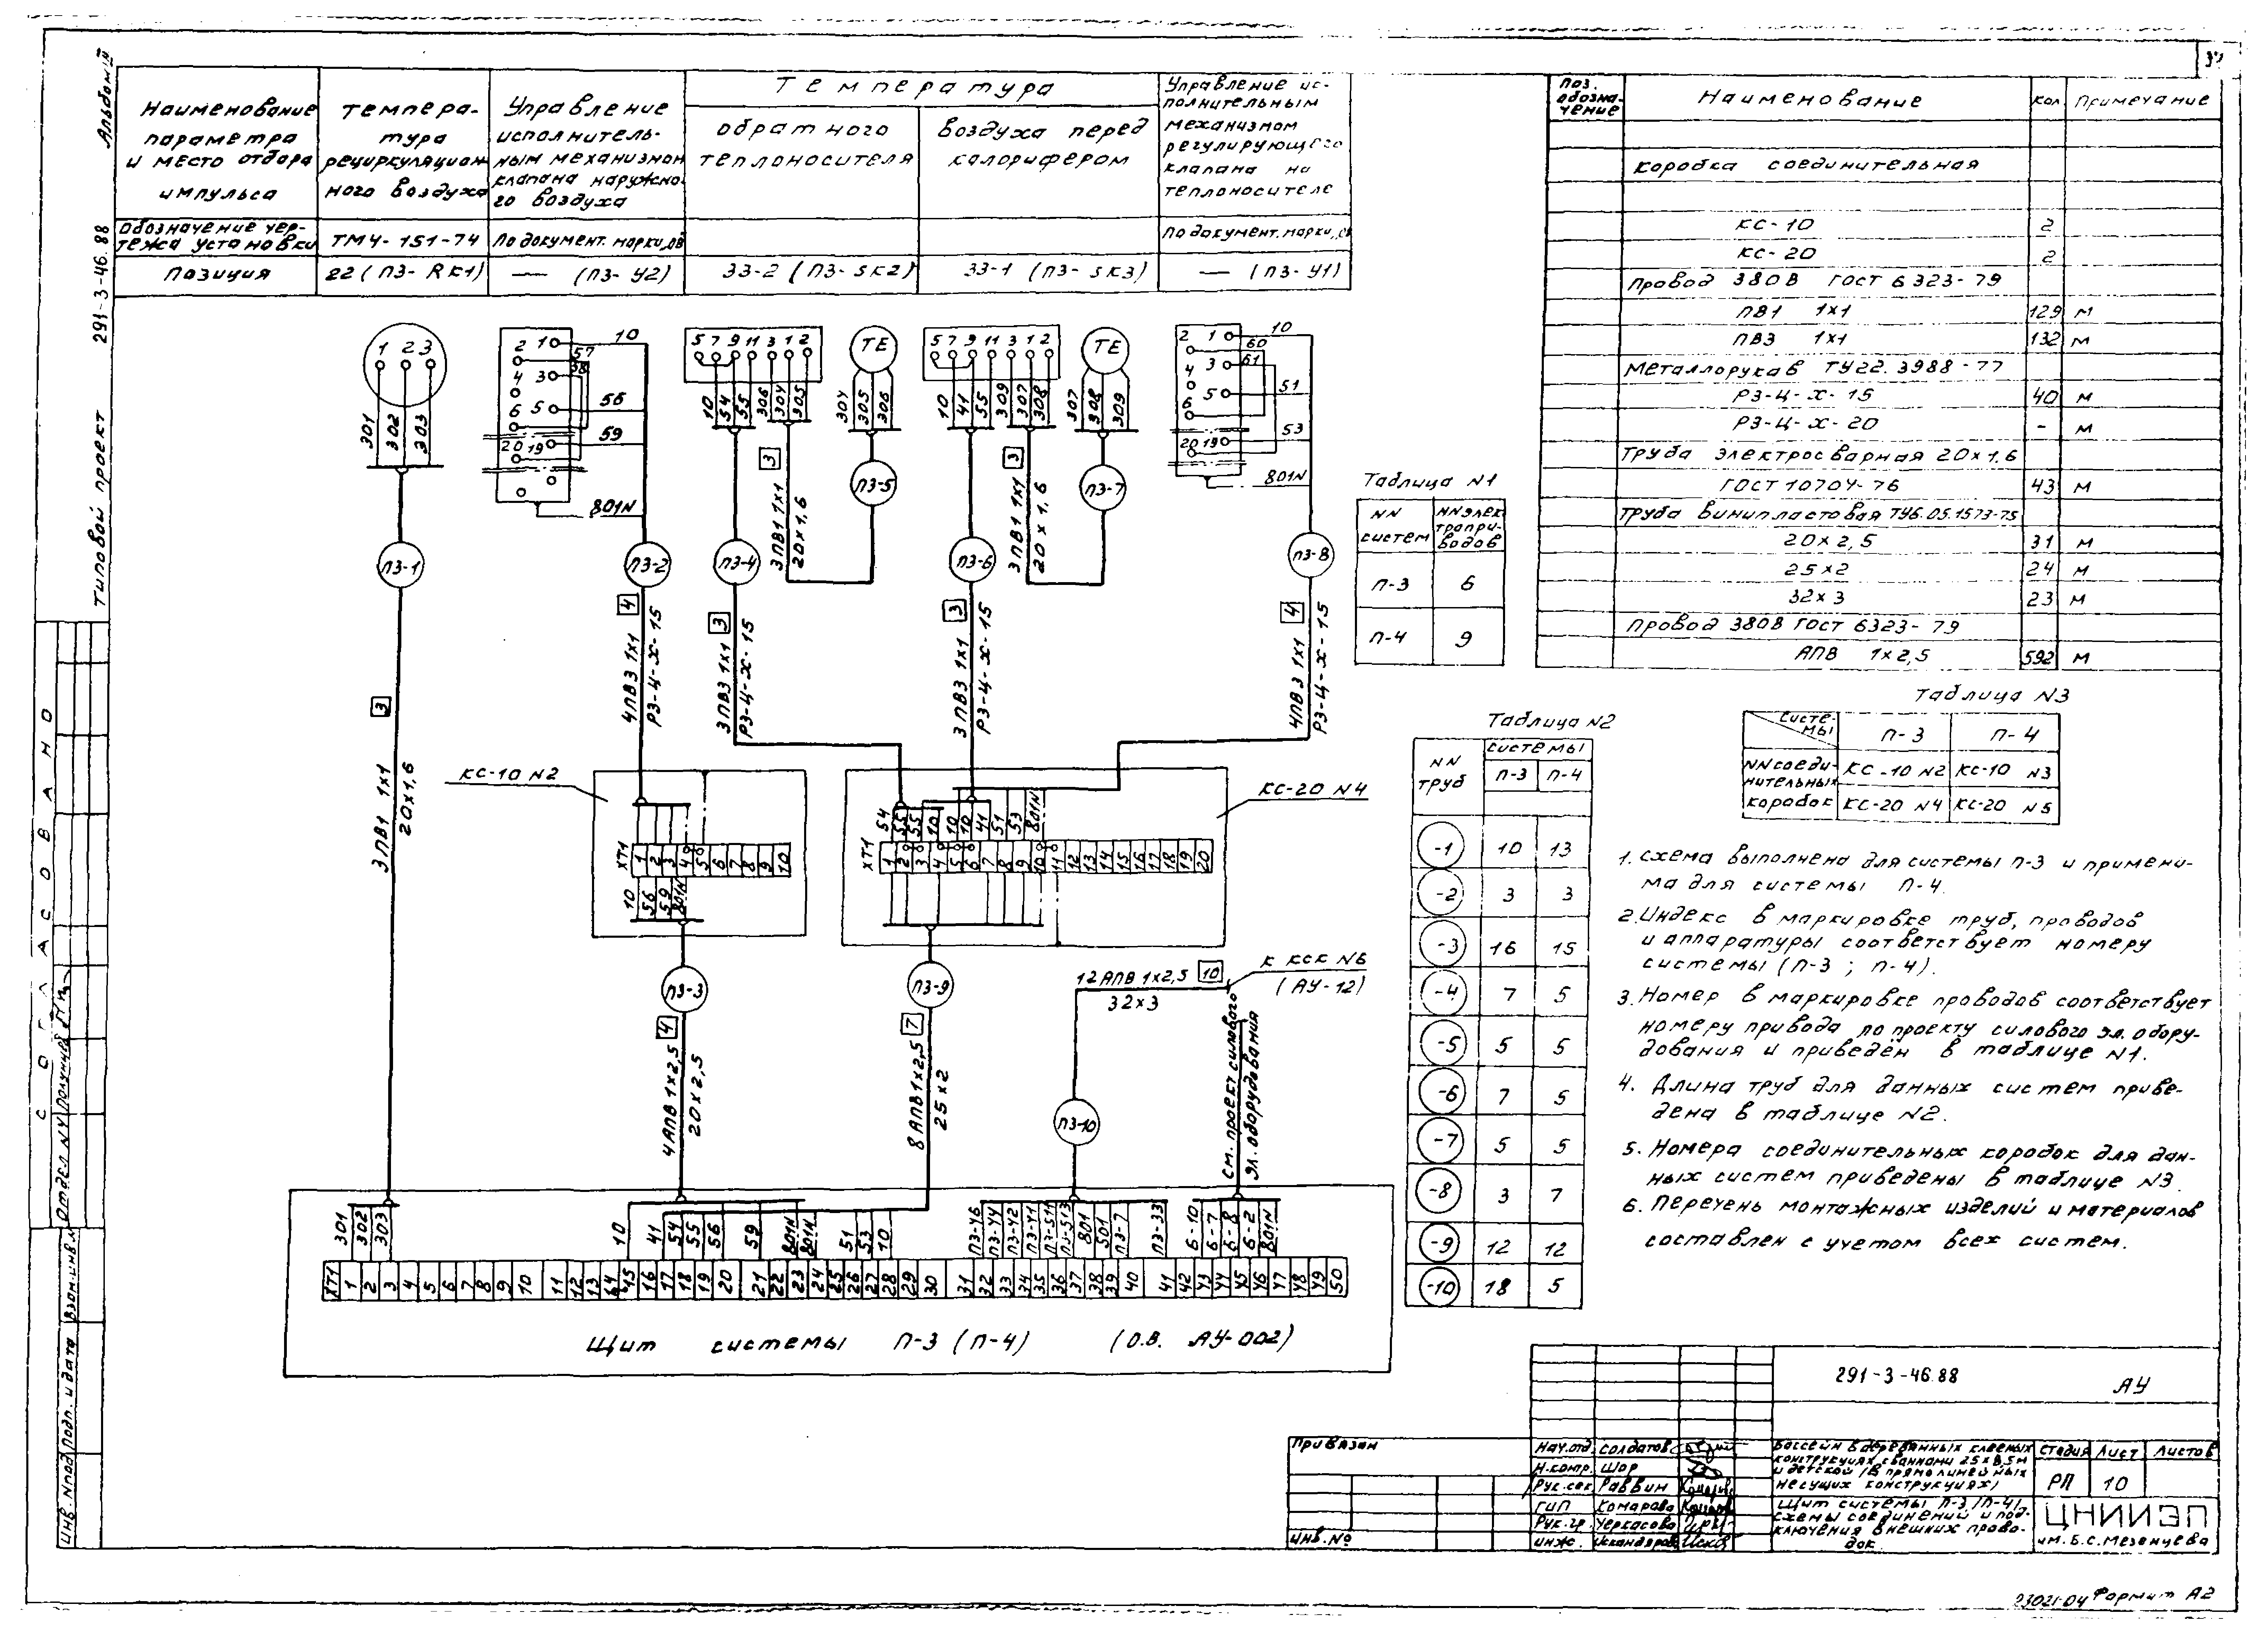 Альбом IV
типовой проект 291-3-46.88
Наименование параметра и место отбора импульса
Температура рециркуляционного воздуха
Управление исполнительным механизмом клапана наружного воздуха
Температура
обратного теплоносителя
воздуха перед калорифером
Управление исполнительным механизмом регулирующего клапана на теплоносителе
Обозначение чертежа установки
ТМ4-151-74
По документ. марки ОВ
По документ. марки ОВ
Позиция
22 (П3-RK1)
— (П3-У2)
33-2 (П3-SK2)
33-1 (П3-SK3)
— (П3-У1)
1 2 3
301 302 303
2 1 10 57 58
4 3
6 5 56
20 19 59
801N
5 7 9 11 3 1 2
10 54 55 306 304 305
ТЕ
304 305 306
5 7 9 11 3 1 2
10 41 55 309 307 308
ТЕ
307 308 309
2 1 10 60 61
4 3
6 5 51
20 19 53
801N
П3-1
П3-2
П3-4
П3-5
П3-6
П3-7
П3-8
3 3ПВ1 1х1 20х1,6
4 4ПВ3 1х1 РЗ-Ц-Х-15
3 3ПВ3 1х1 РЗ-Ц-Х-15
3 3ПВ1 1х1 20х1,6
3 3ПВ3 1х1 РЗ-Ц-Х-15
3 3ПВ1 1х1 20х1,6
4 4ПВ3 1х1 РЗ-Ц-Х-15
КС-10 N2
КС-20 N4
XT1 1 2 3 4 5 6 7 8 9 10
10 56 59 801N
54 55 55 10 10 10 41 51 53 801N
XT1 1 2 3 4 5 6 7 8 9 10 11 12 13 14 15 16 17 18 19 20
П3-3
П3-9
4 4АПВ 1х2,5 20х2,5
7 8АПВ 1х2,5 25х2
12АПВ 1х2,5 10
32х3
К КСК N6
(АУ-12)
П3-10
см. проект силового
эл. оборудования
301 302 303
10 41 54 55 56 59 801N 801N 51 53 10
П3-У6 П3-У4 П3-У2 П3-У1 П3-S11 П3-S13 801 501 П3-7 П3-33
6-10 6-7 6-8 6-2 801N
XT1 1 2 3 4 5 6 7 8 9 10 11 12 13 14 15 16 17 18 19 20 21 22 23 24 25 26 27 28 29 30 31 32 33 34 35 36 37 38 39 40 41 42 43 44 45 46 47 48 49 50
Щит системы П-3 (П-4) (О.В. АУ-002)
Поз. обозначение Наименование Кол. Примечание
Коробка соединительная
КС-10 2
КС-20 2
Провод 380В ГОСТ 6323-79
ПВ1 1х1 129 м
ПВ3 1х1 132 м
Металлорукав ТУ22.3988-77
РЗ-Ц-Х-15 40 м
РЗ-Ц-Х-20 - м
Труба электросварная 20х1,6
ГОСТ 10704-76 43 м
Труба винипластовая ТУ6.05.1573-75
20х2,5 31 м
25х2 24 м
32х3 23 м
Провод 380В ГОСТ 6323-79
АПВ 1х2,5 592 м
Таблица N1
NN систем NN электроприводов
П-3 6
П-4 9
Таблица N2
NN труб Системы
П-3 П-4
-1 10 13
-2 3 3
-3 16 15
-4 7 5
-5 5 5
-6 7 5
-7 5 5
-8 3 7
-9 12 12
-10 18 5
Таблица N3
Системы П-3 П-4
NN соединительных коробок
КС-10 N2 КС-10 N3
КС-20 N4 КС-20 N5
1. Схема выполнена для системы П-3 и примени-
ма для системы П-4.
2. Индекс в маркировке труб, проводов
и аппаратуры соответствует номеру
системы (П-3 ; П-4).
3. Номер в маркировке проводов соответствует
номеру привода по проекту силового эл. обору-
дования и приведён в таблице N1.
4. Длина труб для данных систем приве-
дена в таблице N2.
5. Номера соединительных коробок для дан-
ных систем приведены в таблице N3.
6. Перечень монтажных изделий и материалов
составлен с учетом всех систем.
СОГЛАСОВАНО
Инв. N подл. Подп. и дата Взам.инв.N
291-3-46.88 АУ
Привязан
Инв. №
Нач.отд. Солдатов
Н.контр. Шор
Рук.сек. Раввин
ГИП Комарова
Рук.гр. Черкасова
Инж. Искандяров
Бассейн в деревянных клееных
конструкциях с ваннами 25х8,5м
и детской (в прямолинейных
несущих конструкциях)
Стадия Лист Листов
РП 10
Щит системы П-3 (П-4).
Схемы соединений и под-
ключения внешних прово-
док.
ЦНИИЭП
им. Б.С. Мезенцева
23021-04 Формат А2